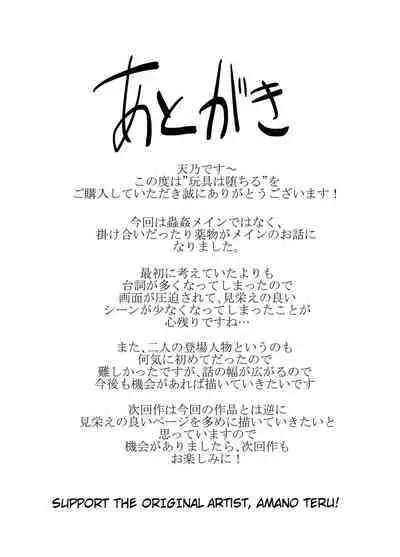 あとがき
天乃です～
この度は”玩具は堕ちる”を
ご購入していただき誠にありがとうございます！
今回は蟲姦メインではなく、
掛け合いだったり薬物がメインのお話に
なりました。
最初に考えていたよりも
台詞が多くなってしまったので
画面が圧迫されて、見栄えの良い
シーンが少なくなってしまったことが
心残りですね…
また、二人の登場人物というのも
何気に初めてだったので
難しかったですが、話の幅が広がるので
今後も機会があれば描いていきたいです
次回作は今回の作品とは逆に
見栄えの良いページを多めに描いていきたいと
思っていますので
機会がありましたら、次回作も
お楽しみに！
SUPPORT THE ORIGINAL ARTIST, AMANO TERU!